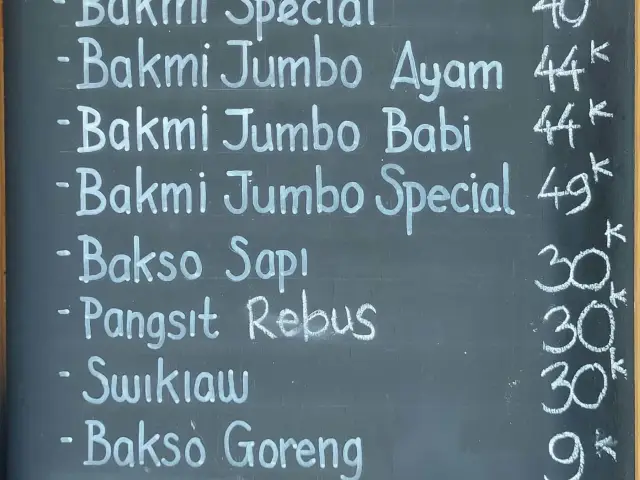 - Bakmi Special 40
- Bakmi Jumbo Ayam 44K
- Bakmi Jumbo Babi 44K
- Bakmi Jumbo Special 49K
- Bakso Sapi 30K
- Pangsit Rebus 30K
- Swikiaw 30K
- Bakso Goreng 9K